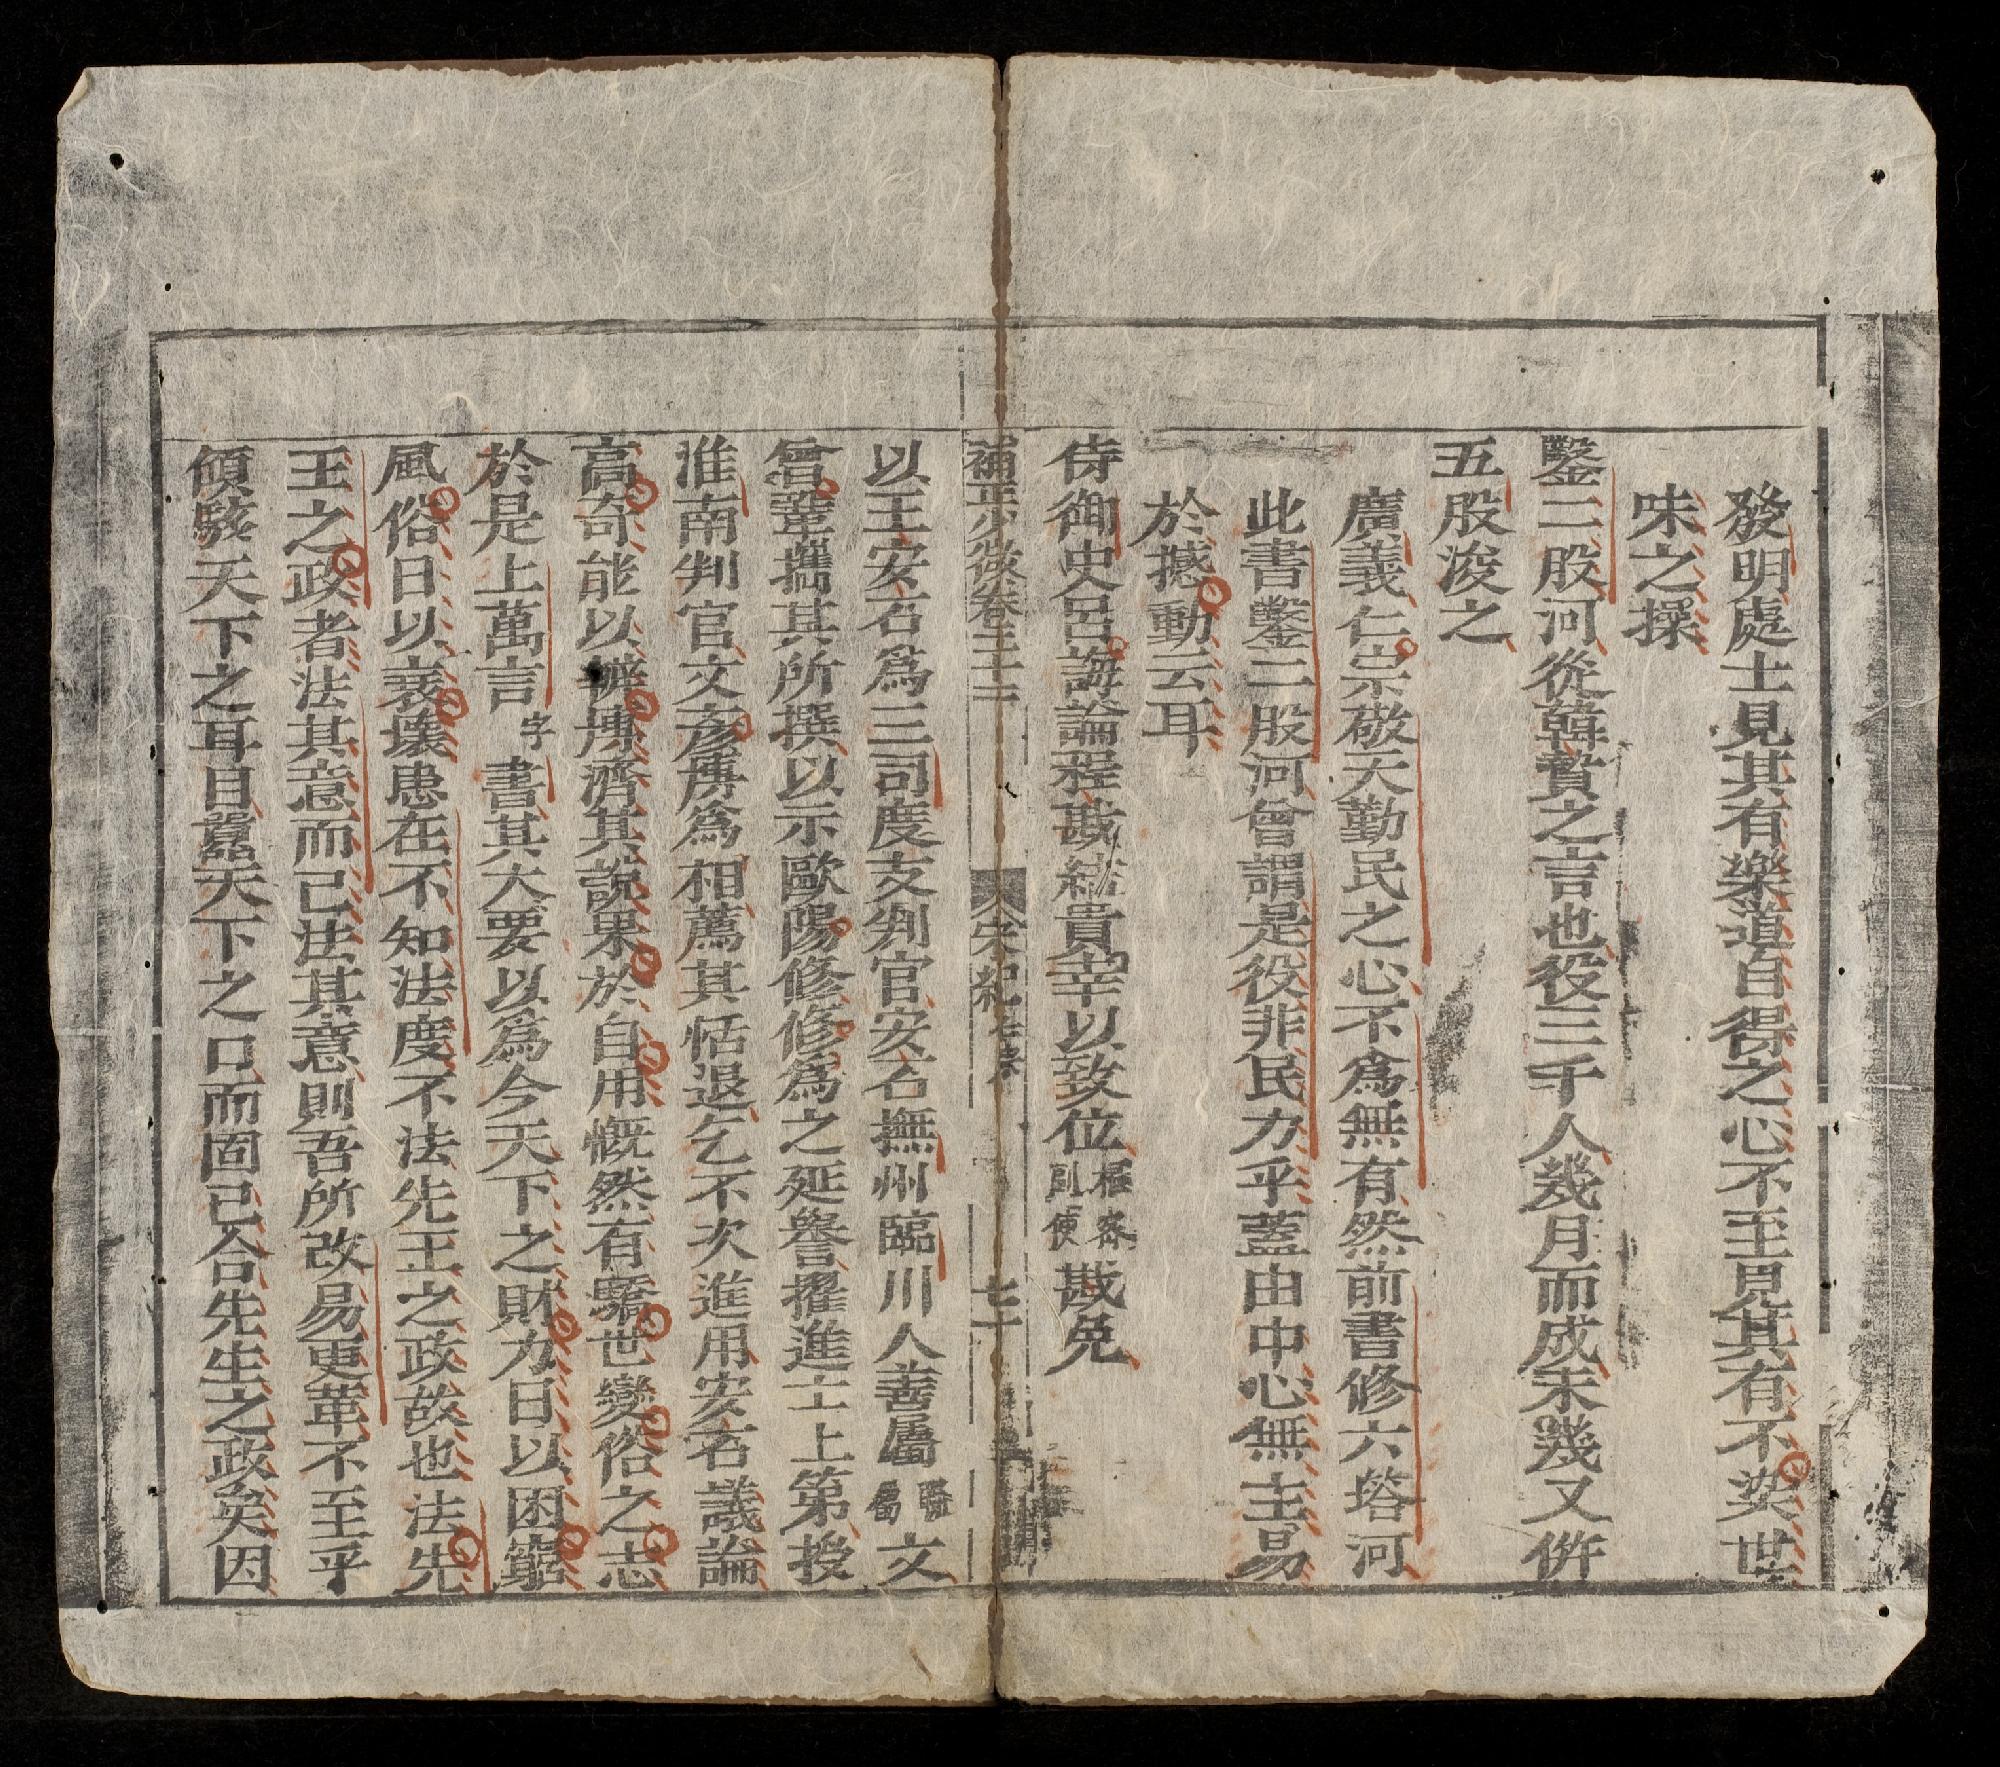 發明處士見其有樂道自得之心不至見其有不染世
味之操
鑿二股河從韓贄之言也役三千人幾月而成未幾又倂
五股浚之
廣義仁宗敬天勤民之心不爲無有然前書修六塔河
此書鑿二股河曾謂是役非民力乎蓋由中心無主易
於撼動云耳
侍御史呂誨論程戡結貴幸以致位樞密副使戡免
補正少微卷三十二 宋紀 七十
以王安石爲三司度支判官安石撫州臨川人善屬文
曾鞏攜其所撰以示歐陽修修爲之延譽擢進士上第授
淮南判官文彥博爲相薦其恬退乞不次進用安石議論
高奇能以辨博濟其說果於自用慨然有矯世變俗之志
於是上萬言字書其大要以爲今天下之財力日以困窮
風俗日以衰壞患在不知法度不法先王之政故也法先
王之政者法其意而已法其意則吾所改易更革不至乎
傾駭天下之耳目囂天下之口而固已合先生之政矣因